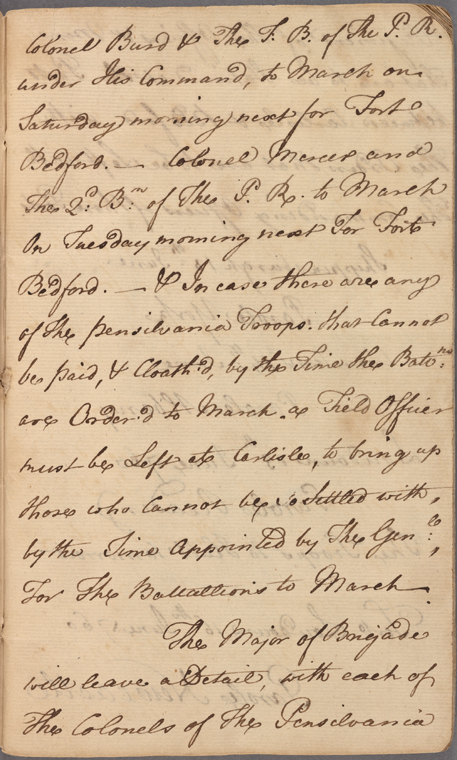 Colonel Burd & The F. B. of The P. R.
under His Command, to March on
Saturday morning next for Fort
Bedford. — Colonel Mercer and
The 2.d B.n of The P. R. to March
On Tuesday morning next For Fort
Bedford. — & In case there are any
of the pensilvania Troops. that Cannot
be paid, & Cloath'd, by the Time the Bat.ns
are Order'd to March. a Field Officer
must be Left at Carlisle, to bring up
those who Cannot be Settled with,
by the Time Appointed by The Gen.l,
For The Battallions to March.
The Major of Brigade
will leave a Detail, with each of
The Colonels of The Pensilvania